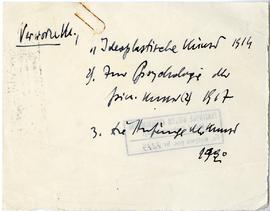 Verworn M.,
"Ideoplastische Kunst 1914
2). Zur Psychologie der
prim. Kunst (2) 1917
3. Die Anfänge der Kunst
1920